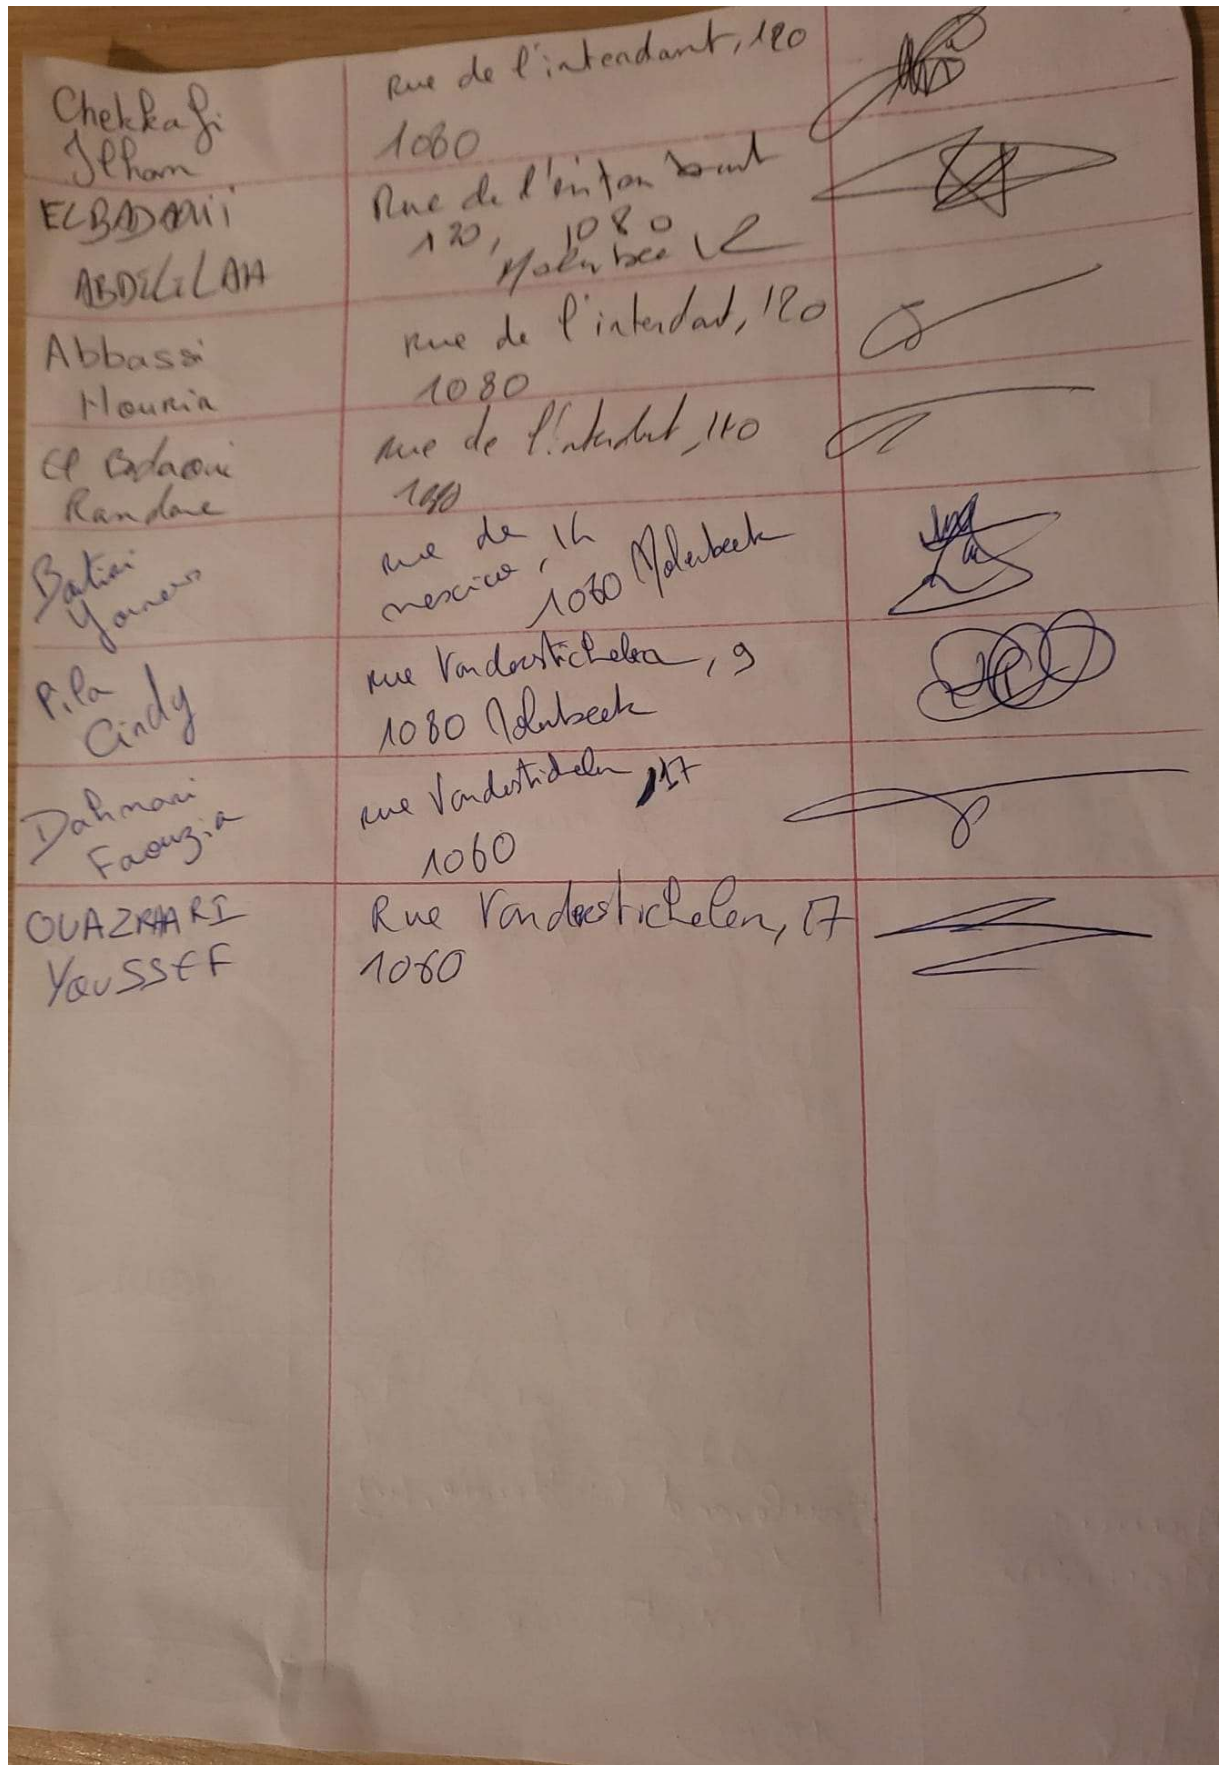 Chekkafi
Ilham
Rue de l'intendant, 120
1080
ELBADAOUI
ABDELILAH
Rue de l'
120, 1080
Abbassi
Houria
Rue de l'intendant, 120
1080
El Badaoui
rue de
Younes
rue de
mexico, 14
1080 Molenbeek
Pila
Cindy
rue Vanderstichelen, 9
1080 Molenbeek
Dahmani
Faouzia
rue Vanderstichelen, 17
1080
YOUSSEF
Rue Vanderstichelen, 17
1080